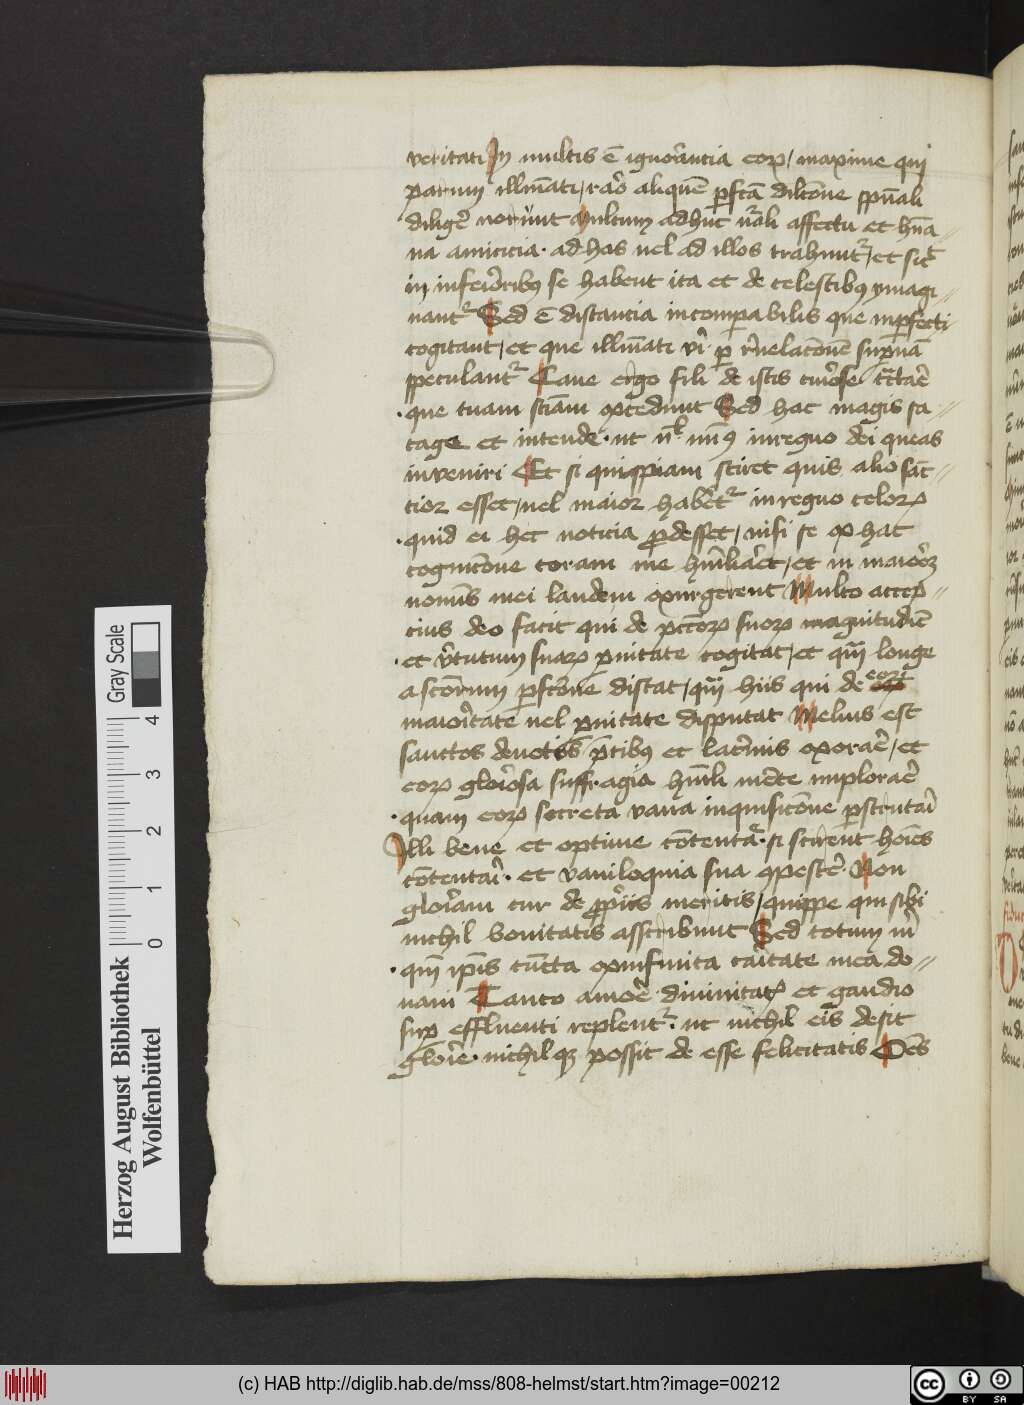 veritati In multis ē ignorātia eoꝝ / maxime qui
parum illuīati / raro aliquē ꝑfcā dilcōne spūali
diliger̄ norūnt Multum adhuc nāli affectu et hūa
na amicicia · ad hos vel ad illos trahunt᷑ / et sic
in inferioribꝰ se habent ita et de celestibꝰ ymagi
nant᷑ Sed ē distancia incomꝑabilis que inꝑfecti
cogitant / et que illuīati viri ꝑ revelacōnē suꝑnā
speculant᷑ Cave ergo fili de istis curiose tractare
que tuam sciam excedunt Sed hac magis sa
tage et intende · ut vl mimꝰ in regno dei queas
inveniri Et si quispiam sciret quis alio sāc
tior esset / vel maior haberet᷑ in regno celoꝝ
quid ei hec noticia ꝓdesset / nisi se ex hac
cognicōne coram me humiliaret / et in maiorem
nominis mei laudem exurgerent Multo accep
cius deo facit qui de pctoꝝ suoꝝ magnitudīe
et virtutum suaꝝ ꝑvitate cogitat / et quam longe
a sctorum ꝑfcōne distat / quam hiis qui de eoꝝ
maioritate vel ꝑvitate disputat Melius est
sanctos devotis p̄cibꝰ et lacrimis exorare / et
eoꝝ gloriosa suffragia humili mēte implorare
quam eoꝝ secreta vana inquisicōne ꝑscrutari
Illi bene et optime cōtentant᷑ · si scirent hoīes
cōtentari · et vaniloquia sua ꝯpescere · Non
gloriam cur de ꝓpriis meritis / quippe qui sibi
nichil bonitatis asscribunt Sed totum michi
qm̄ ip̄is cūcta ex infinita caritate mea do
navi Tanto amore divinitatꝭ et gaudio
suꝑ effluenti replent᷑ · ut nichil eis desit
glorie · nichilqꝫ possit de esse felicitatis Oēs
Herzog August Bibliothek
Wolfenbüttel
Gray Scale
0 1 2 3 4
(c) HAB http://diglib.hab.de/mss/808-helmst/start.htm?image=00212
cc BY SA